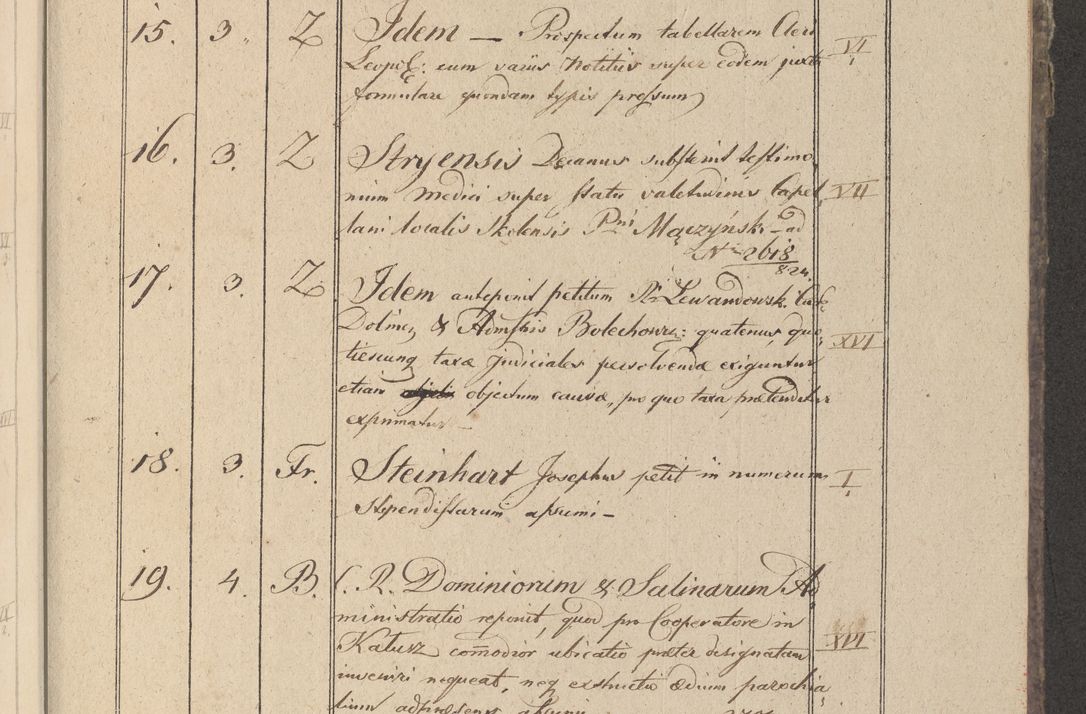 15. 3. Z Idem — Prospectum tabellarem Cleri VI
Leopol: cum variis Notitiis super eodem juxta
formulare quondam typis pressum
16. 3. Z Stryensis Decanus substernit testimo
nium Medici super statu valetudinis Capel VII
lani localis Skolensis Pni Mączyński – ad
Nr 2618
824.
17. 3. Z Idem anteponit petitum Lewandowski
Dolinen & Bolechoww: quatenus, quo
tiescunq taxæ judiciales persolvendæ exiguntur XVI
etiam objectum causæ, pro quo taxa prætenditur
exprimatur –
18. 3. Fr. Steinhart Josephus petit in numerum I
stipendistarum assumi –
19. 4. B. C. R. Dominiorum & Salinarum Ad
ministratio reponit, quod pro Cooperatore in
Kałusz com̄odior ubicatio præter designatam XVI
inveniri nequeat, neq exstructio ædium parochia
lium